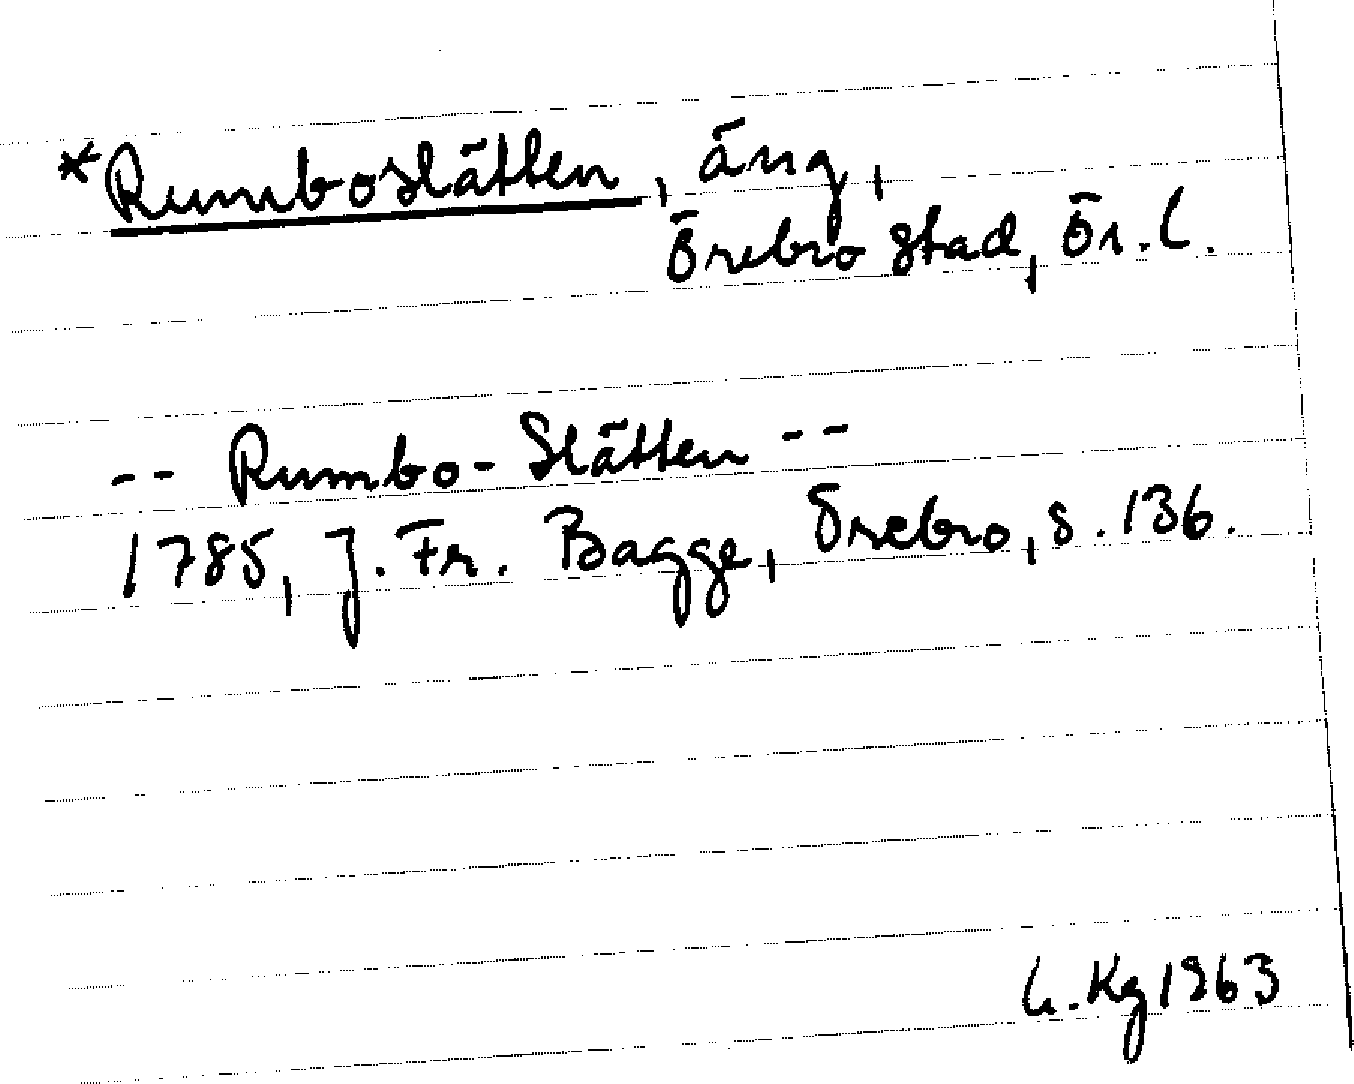 *Rumboslätten, äng,
Örebro stad, Ör. l.
-- Rumbo-Slätten --
1785, J. Fr. Bagge, Örebro, s. 136.
Kg 1963